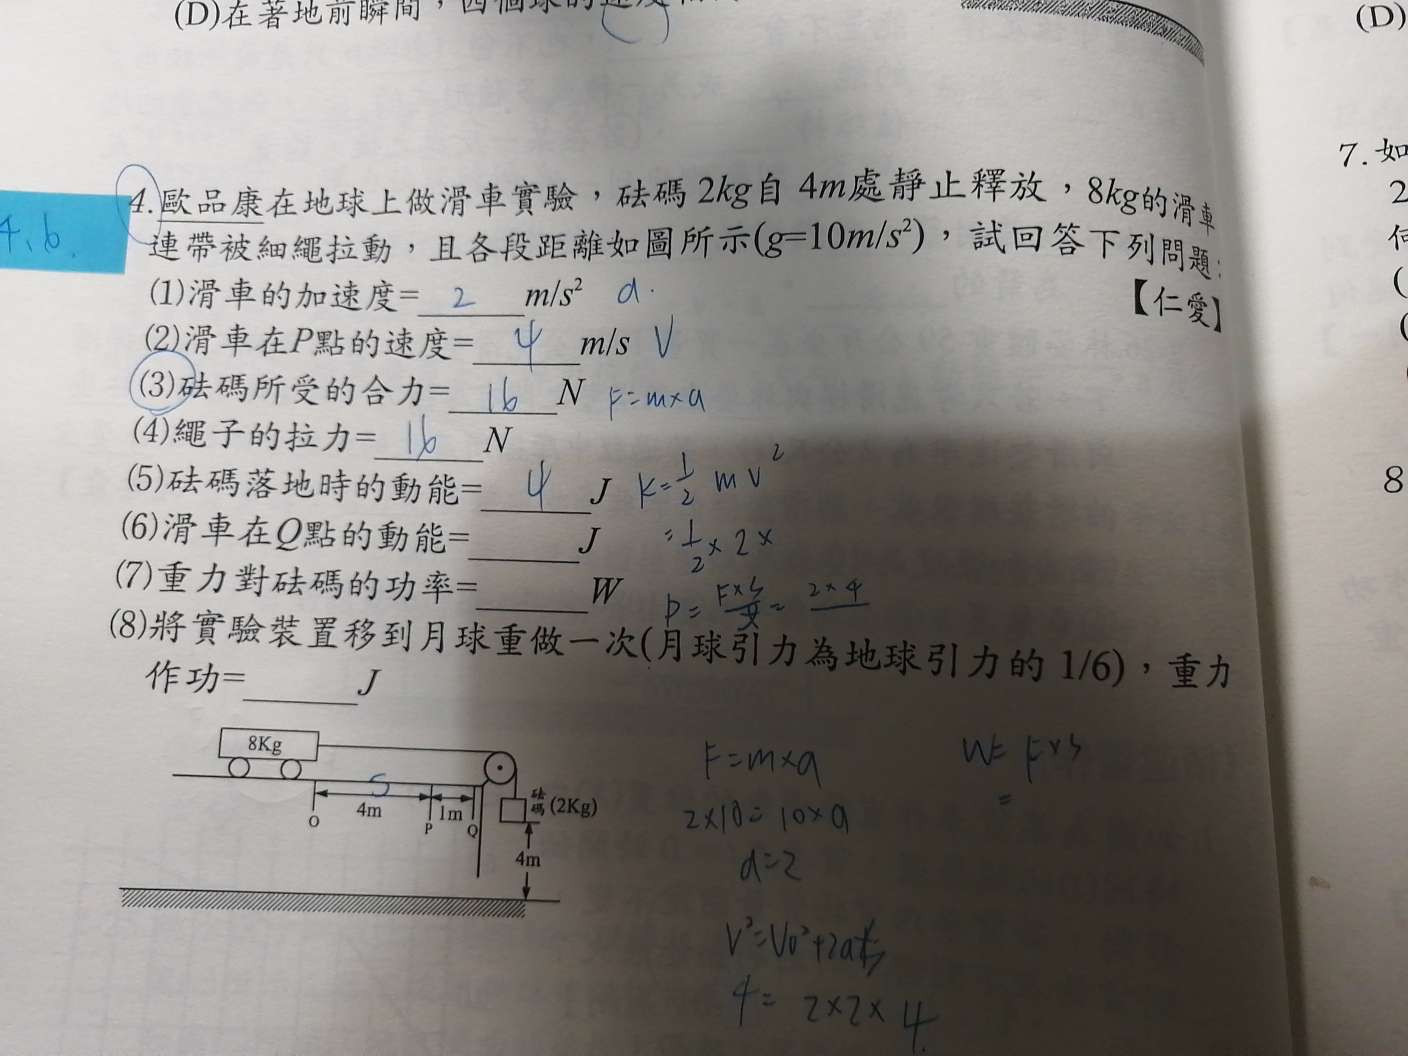 (D)在著地前瞬間，四個球的速度
(D)
4.歐品康在地球上做滑車實驗，砝碼 2kg自 4m處靜止釋放，8kg的滑車
連帶被細繩拉動，且各段距離如圖所示(g=10m/s²)，試回答下列問題：
【仁愛】
4、6.
(1)滑車的加速度= 2 m/s² a.
(2)滑車在P點的速度= 4 m/s V
(3)砝碼所受的合力= 16 N F=m×a
(4)繩子的拉力= 16 N
(5)砝碼落地時的動能= 4 J K=1/2 mv²
(6)滑車在Q點的動能=____J =1/2×2×
(7)重力對砝碼的功率=____W P= F×S/t = 2×4
(8)將實驗裝置移到月球重做一次(月球引力為地球引力的 1/6)，重力
作功=____J
8Kg
5
4m
1m
O
P
Q
砝碼(2Kg)
4m
F=m×a
2×10=10×a
a=2
V²=V0²+2as
4= 2×2×4
W= F×S
=
7.如
2
何
(
(
8